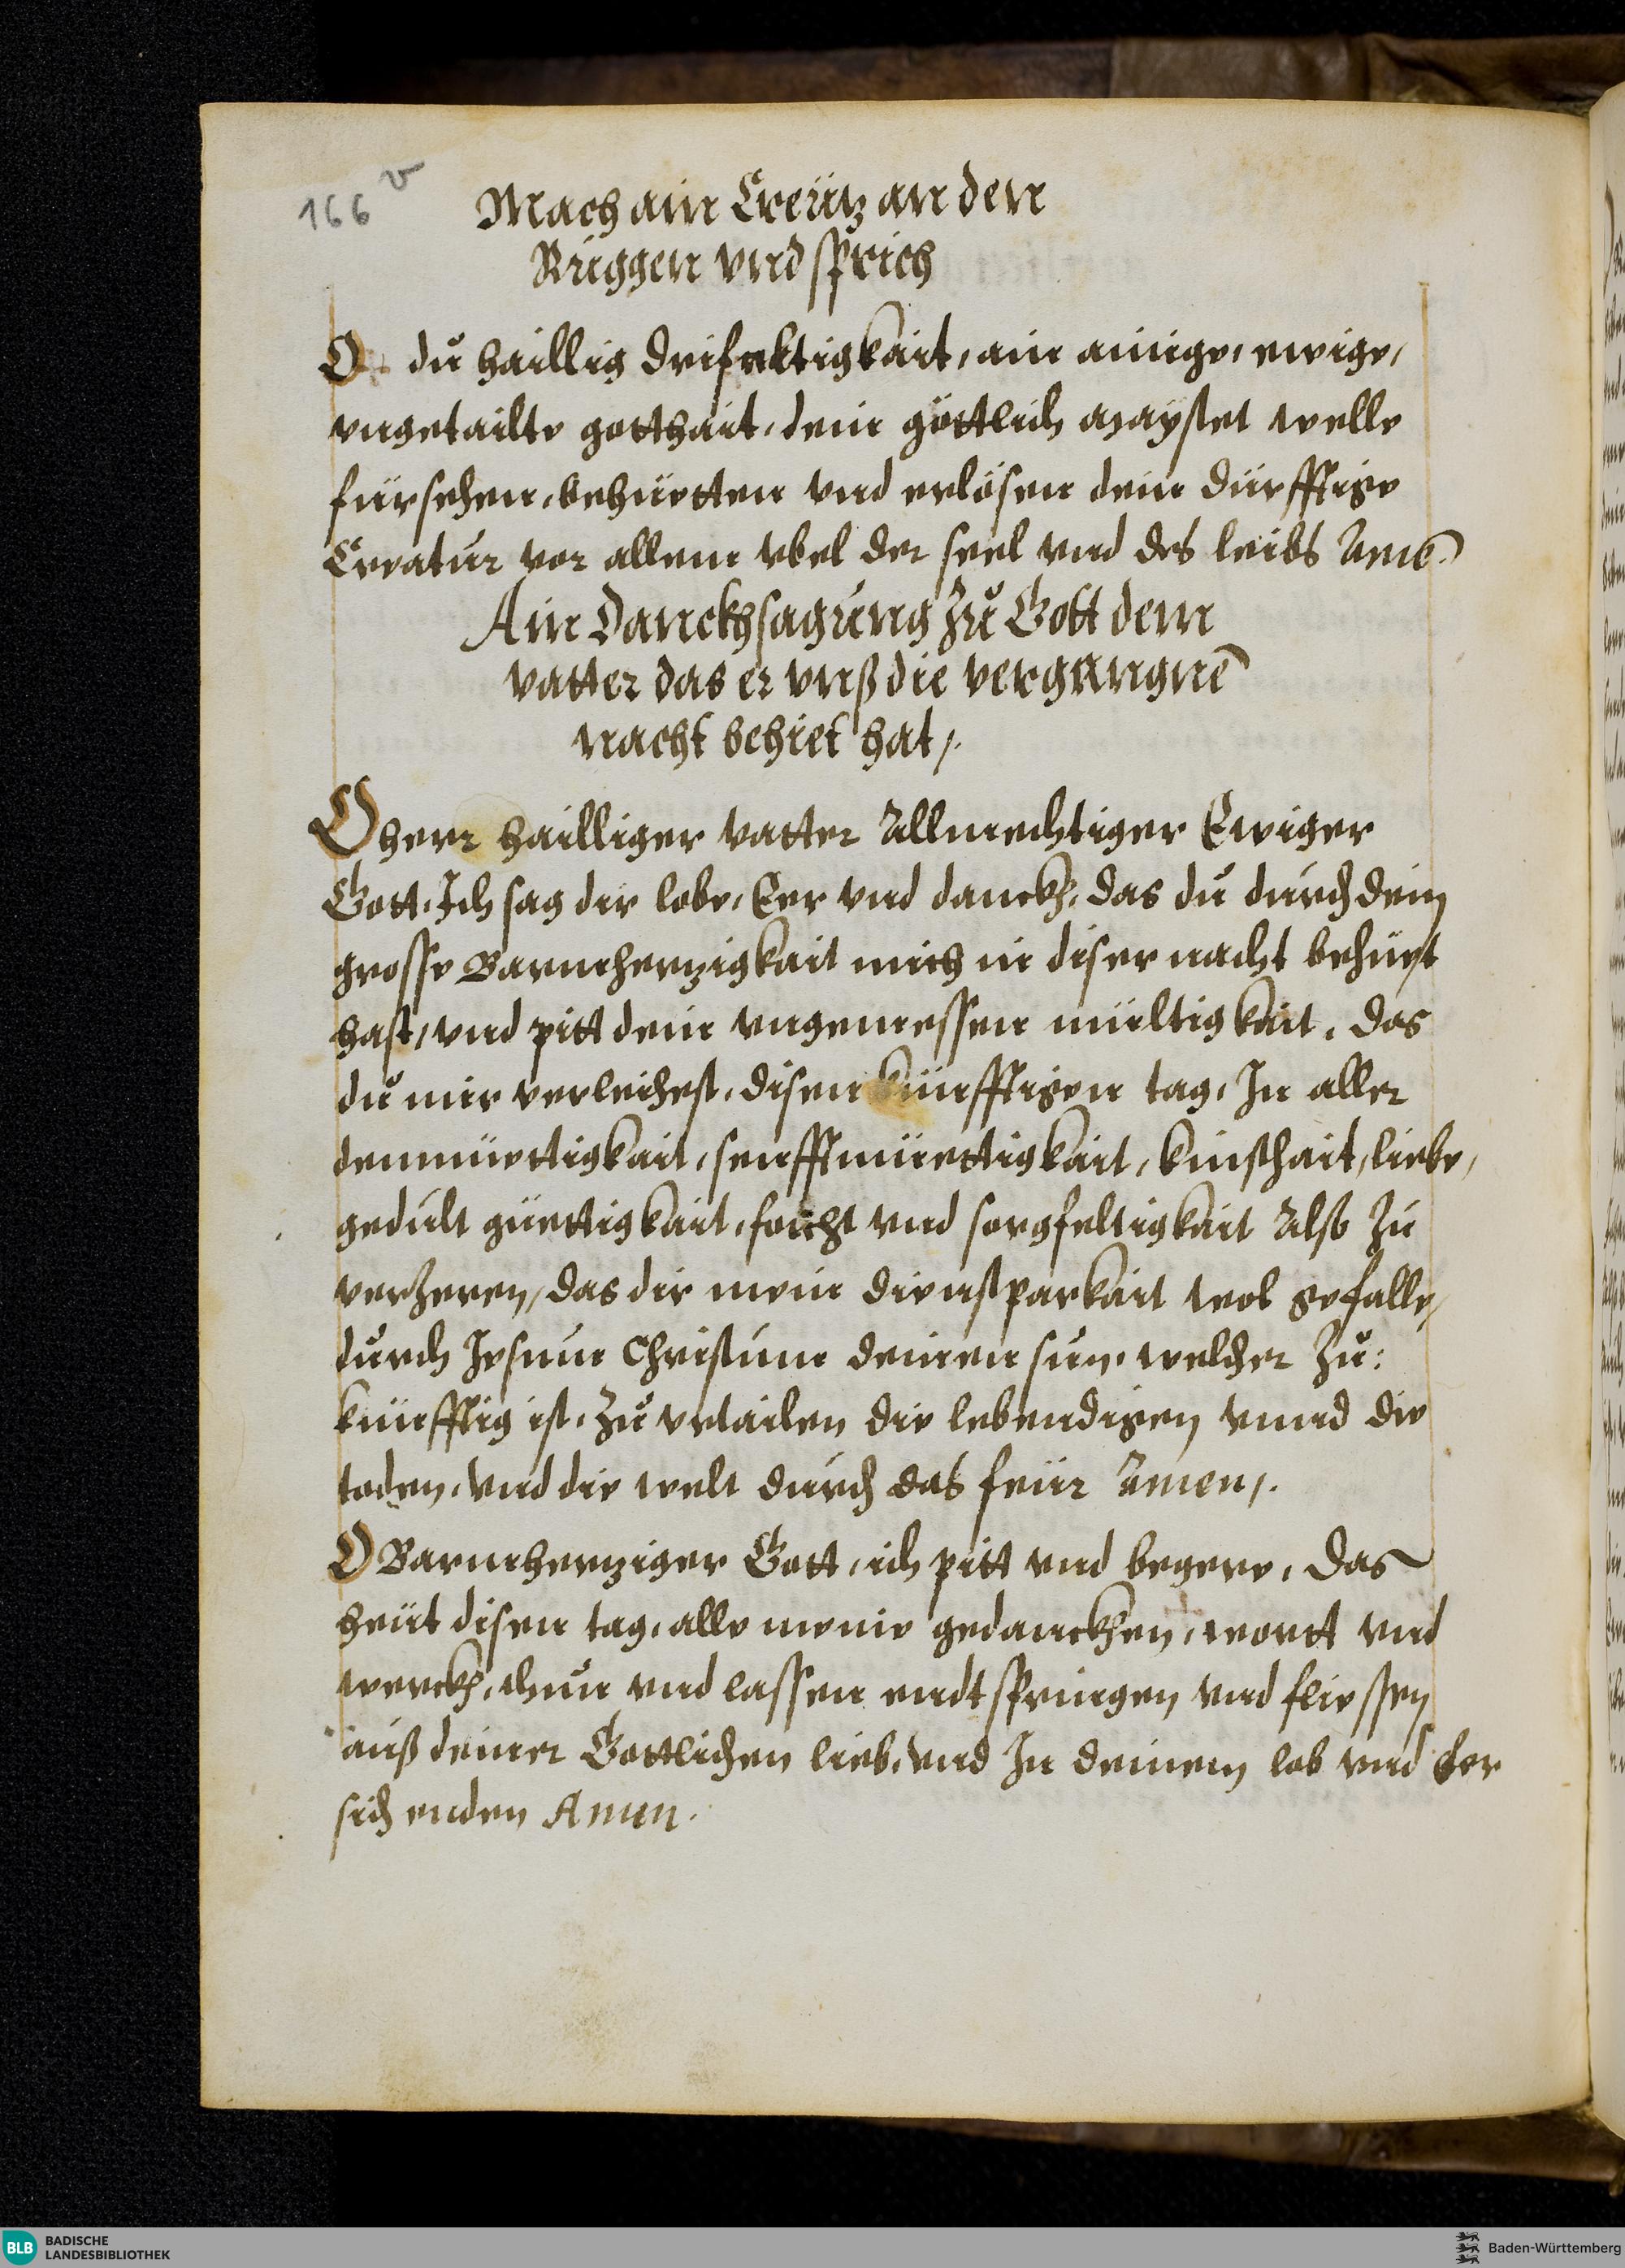 166 v
Mach ain Creütz an den
Ruggen vnd sprich
O du haillig drifaltigkait, ain ainige, ewige,
vngetailte gotthait, dein göttlich maystet welle
fürsehen, behüetten vnd erlösen dein dürfftige
Creatur vor allem vbel der seel vnd des leibs Amē
Ain Danckhsagung Zů Gott dem
vatter das er vnß die vergangnē
nacht behiet hat /.
O herr hailliger vatter Allmechtiger Ewiger
Gott, Ich sag dir lobe, Eer vnd danckh, das du durch dein
grosse Barmhertzigkait mich in diser nacht behüet
hast, vnd pitt dein vngemessen miltigkait, das
du mir verleihest, disen künfftigen tag, In aller
demmüettigkait, senfftmüettigkait, keuschait, liebe,
gedult güettigkait, forcht vnd sorgfeltigkait Also Zu
verzeren, das dir mein dienstparkait wol gefalle,
durch Jesum Christum deinen sun, welcher Zů:
künfftig ist, Zů vrtailen die lebendigen vnnd die
toden, vnd die welt durch das feür Amen /.
O Barmhertziger Gott, ich pitt vnd begere, das
heüt disen tag, alle meine gedanckhen, wortt vnd
werckh, thun vnd lassen endtspringen vnd fliessen
auß deiner Göttlichen lieb, vnd In deinem lob vnd Eer
sich enden Amen.
BLB BADISCHE
LANDESBIBLIOTHEK
Baden-Württemberg